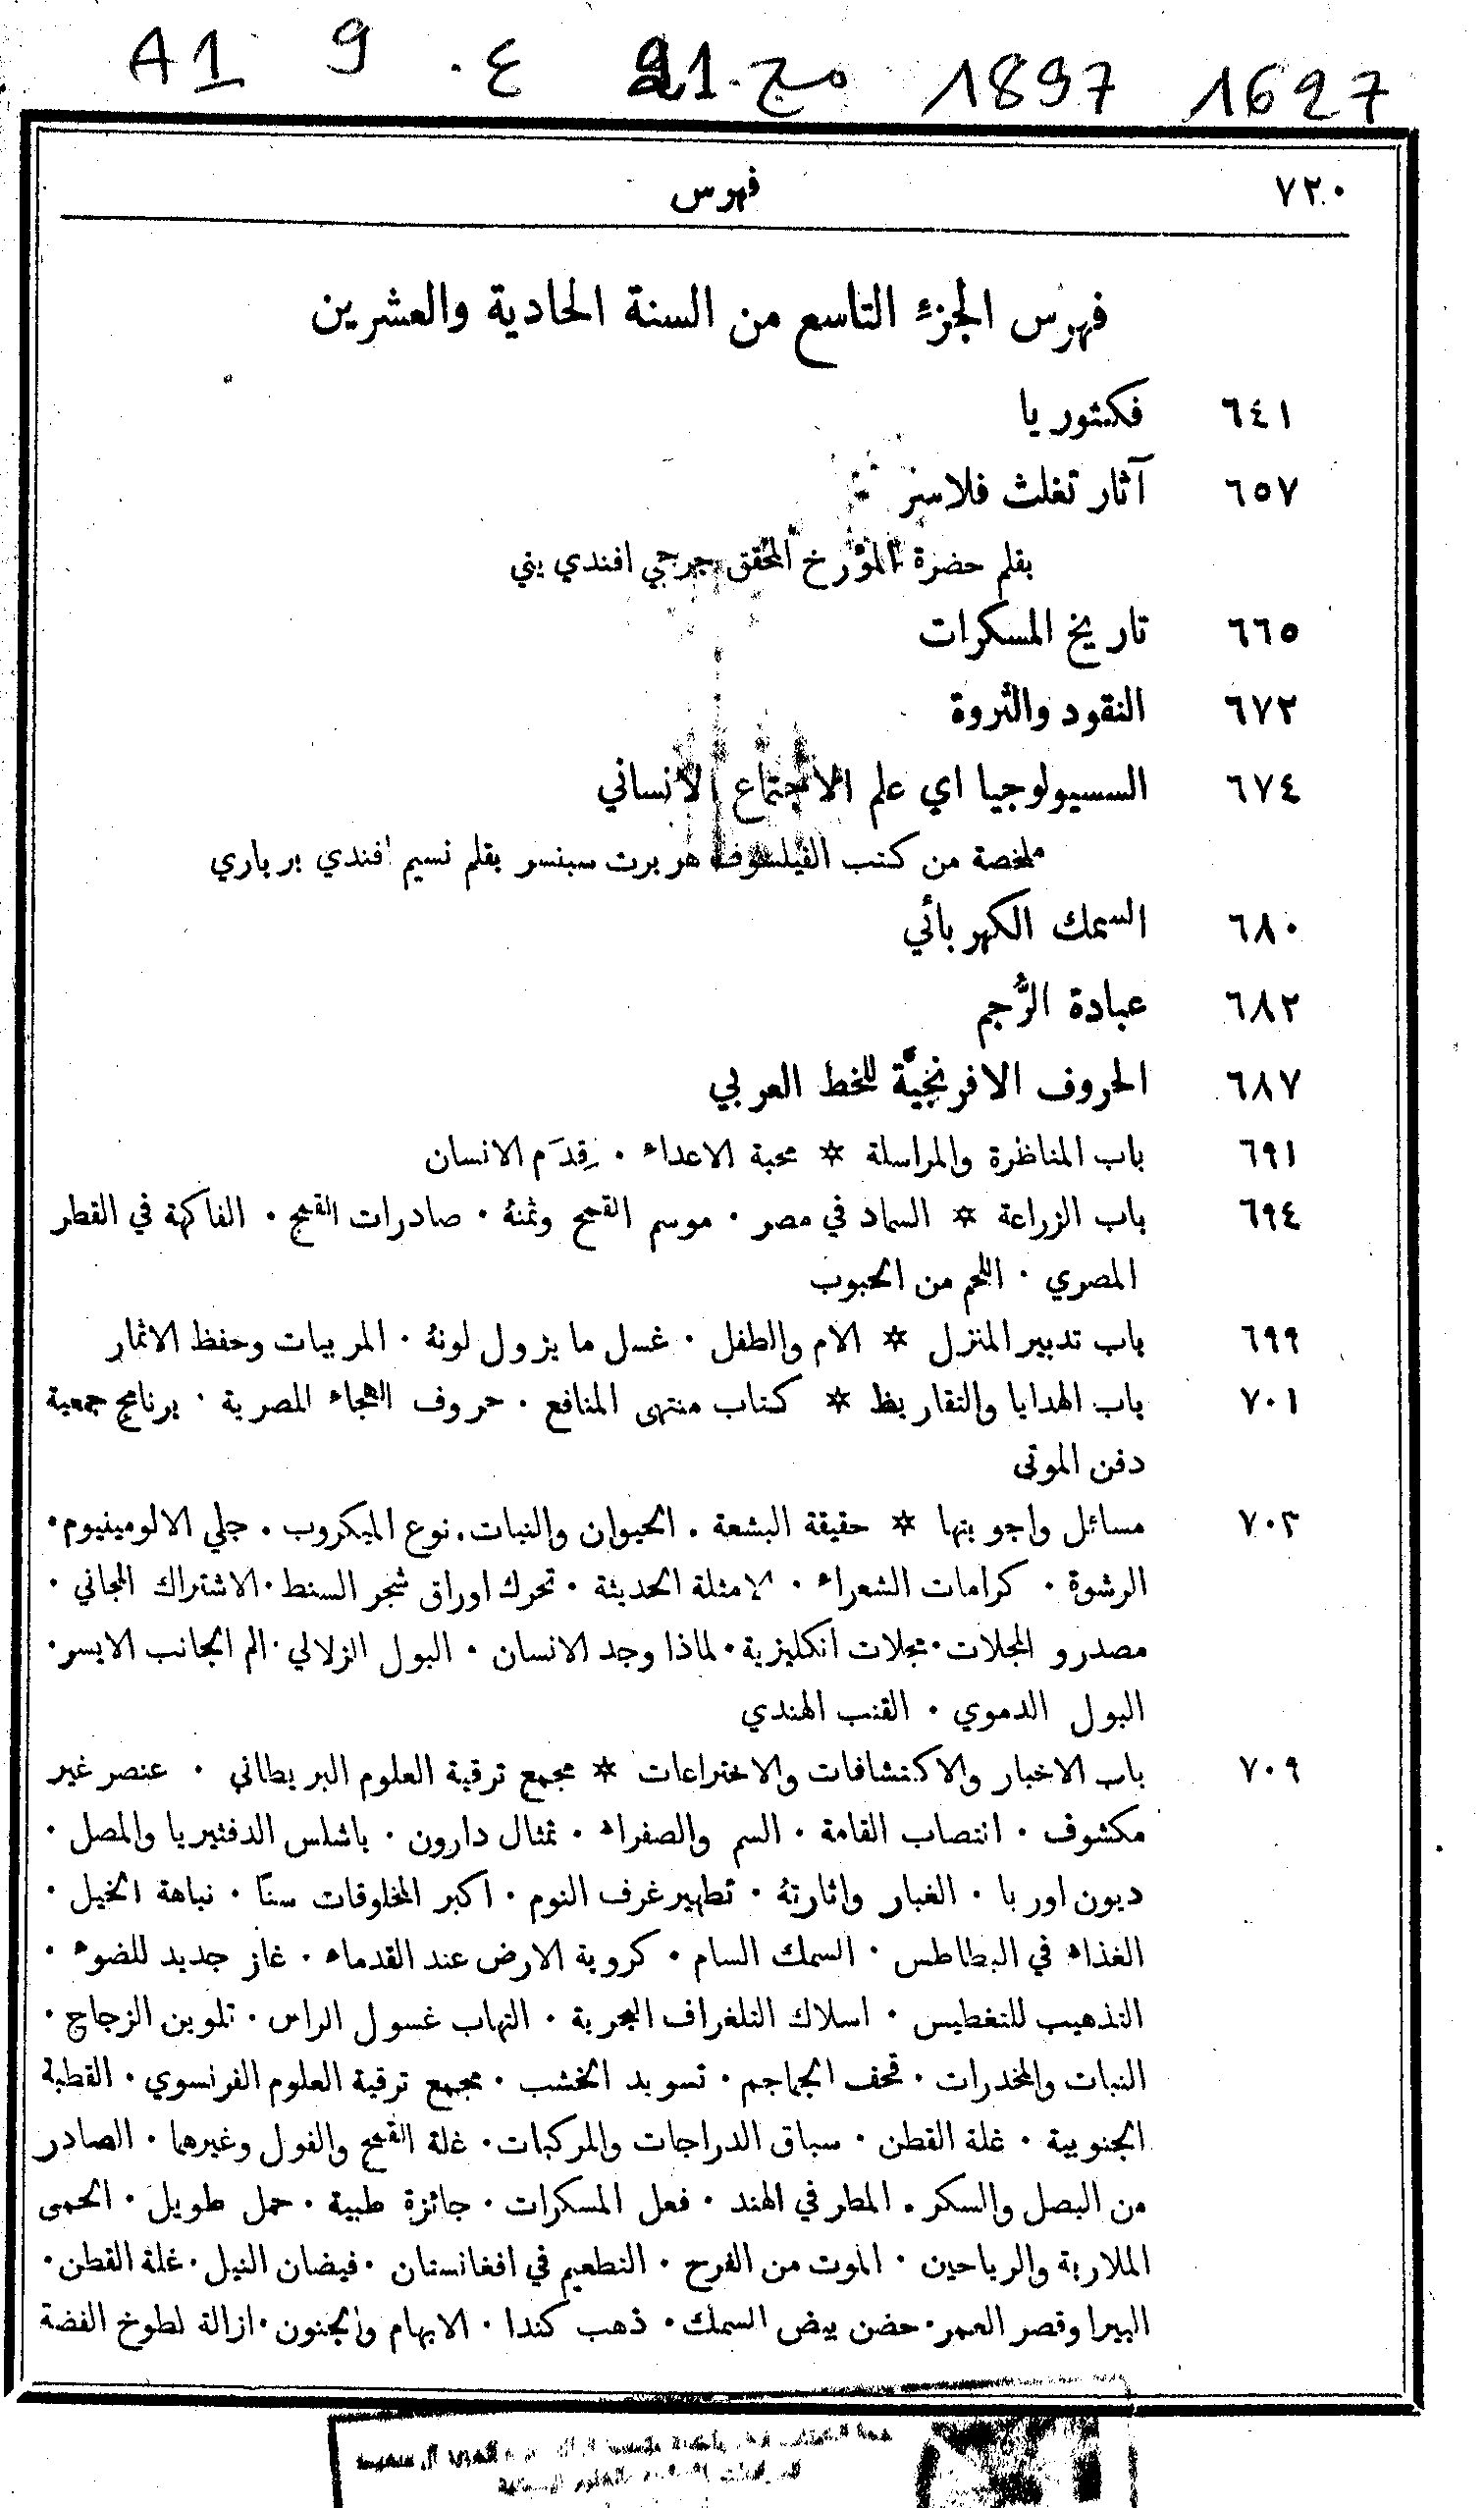 A1 9 ع. 21 مج. 1897 1627
٧٢٠ فهرس
فهرس الجزء التاسع من السنة الحادية والعشرين
٦٤١ فكتوريا
٦٥٧ آثار تغلث فلاسر
بقلم حضرة المؤرخ المحقق جرجي افندي يني
٦٦٥ تاريخ المسكرات
٦٧٢ النقود والثروة
٦٧٤ السسيولوجيا اي علم الاجتماع الانساني
ملخصة من كتب الفيلسوف هربرت سبنسر بقلم نسيم افندي برباري
٦٨٠ السمك الكهربائي
٦٨٢ عبادة الرُّجم
٦٨٧ الحروف الافرنجيَّة للخط العربي
٦٩١ باب المناظرة والمراسلة * محبة الاعداء · قِدَم الانسان
٦٩٤ باب الزراعة * السماد في مصر · موسم القمح وثمنهُ · صادرات القمح · الفاكهة في القطر
المصري · اللحم من الحبوب
٦٩٩ باب تدبير المنزل * الام والطفل · غسل ما يزول لونهُ · المربيات وحفظ الاثمار
٧٠١ باب الهدايا والتقاريظ * كتاب منتهى المنافع · حروف الهجاء المصرية · برنامج جمعية
دفن الموتى
٧٠٣ مسائل واجوبتها * حقيقة البشعة · الحيوان والنبات · نوع الميكروب · جلي الالومينيوم ·
الرشوة · كرامات الشعراء · الامثلة الحديثة · تحرك اوراق شجر السنط · الاشتراك المجاني ·
مصدرو المجلات · مجلات انكليزية · لماذا وجد الانسان · البول الزلالي · الم الجانب الايسر ·
البول الدموي · القنب الهندي
٧٠٩ باب الاخبار والاكتشافات والاختراعات * مجمع ترقية العلوم البريطاني · عنصر غير
مكشوف · انتصاب القامة · السم والصفراء · تمثال دارون · باشلس الدفثيريا والمصل ·
ديون اوربا · الغبار واثارتهُ · تطهير غرف النوم · اكبر المخلوقات سنًّا · نباهة الخيل ·
الغذاء في البطاطس · السمك السام · كروية الارض عند القدماء · غاز جديد للضوء ·
التذهيب للتغطيس · اسلاك التلغراف البحرية · التهاب غسول الراس · تلوين الزجاج ·
النبات والمخدرات · قحف الجماجم · تسويد الخشب · مجمع ترقية العلوم الفرنسوي · القطبة
الجنوبية · غلة القطن · سباق الدراجات والمركبات · غلة القمح والفول وغيرهما · الصادر
من البصل والسكر · المطر في الهند · فعل المسكرات · جائزة طبية · حمل طويل · الحمى
الملارية والرياحين · الموت من الفرح · التطعيم في افغانستان · فيضان النيل · غلة القطن ·
البيرا وقصر العمر · حضن بيض السمك · ذهب كندا · الابهام والجنون · ازالة لطوخ الفضة